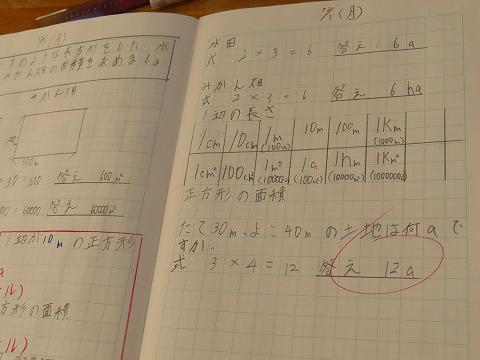 7/1(月)
すのような長方形をした、水
みかん畑の面積を求めましょ
みかん畑
300m
答え 600m²
00 = 60000 答え 60000m²
1辺が10mの正方形
方形の面積
7/1(月)
水田
式 2×3=6 答え 6a
みかん畑
式 2×3=6 答え 6ha
1辺の長さ
1cm 10cm 1m (100cm) 10m 100m 1Km (1000m)
1cm² 100cm² 1m² (10000cm²) 1a (100m²) 1ha (10000m²) 1Km² (1000000m²)
正方形の面積
たて30m、よこ40mの土地は何aで
すか。
式 3×4=12 答え 12a